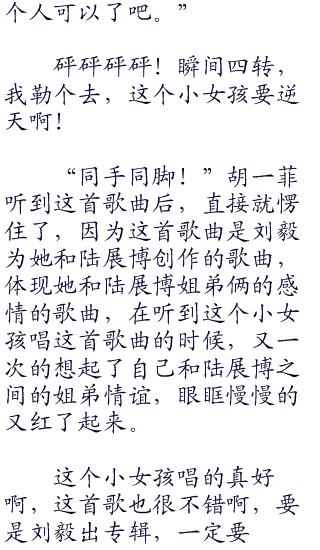 个人可以了吧。”
砰砰砰砰！瞬间四转，
我勒个去，这个小女孩要逆
天啊！
“同手同脚！”胡一菲
听到这首歌曲后，直接就愣
住了，因为这首歌曲是刘毅
为她和陆展博创作的歌曲，
体现她和陆展博姐弟俩的感
情的歌曲，在听到这个小女
孩唱这首歌曲的时候，又一
次的想起了自己和陆展博之
间的姐弟情谊，眼眶慢慢的
又红了起来。
这个小女孩唱的真好
啊，这首歌也很不错啊，要
是刘毅出专辑，一定要